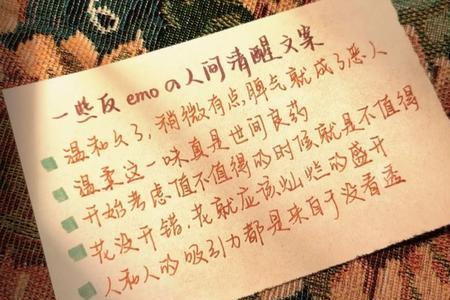 一些反emoの人间清醒文案
温和久了,稍微有点脾气就成了恶人
温柔这一味真是世间良药
开始考虑值不值得的时候就是不值得
花没开错,花就应该灿烂的盛开
人和人的吸引力都是来自于没看透